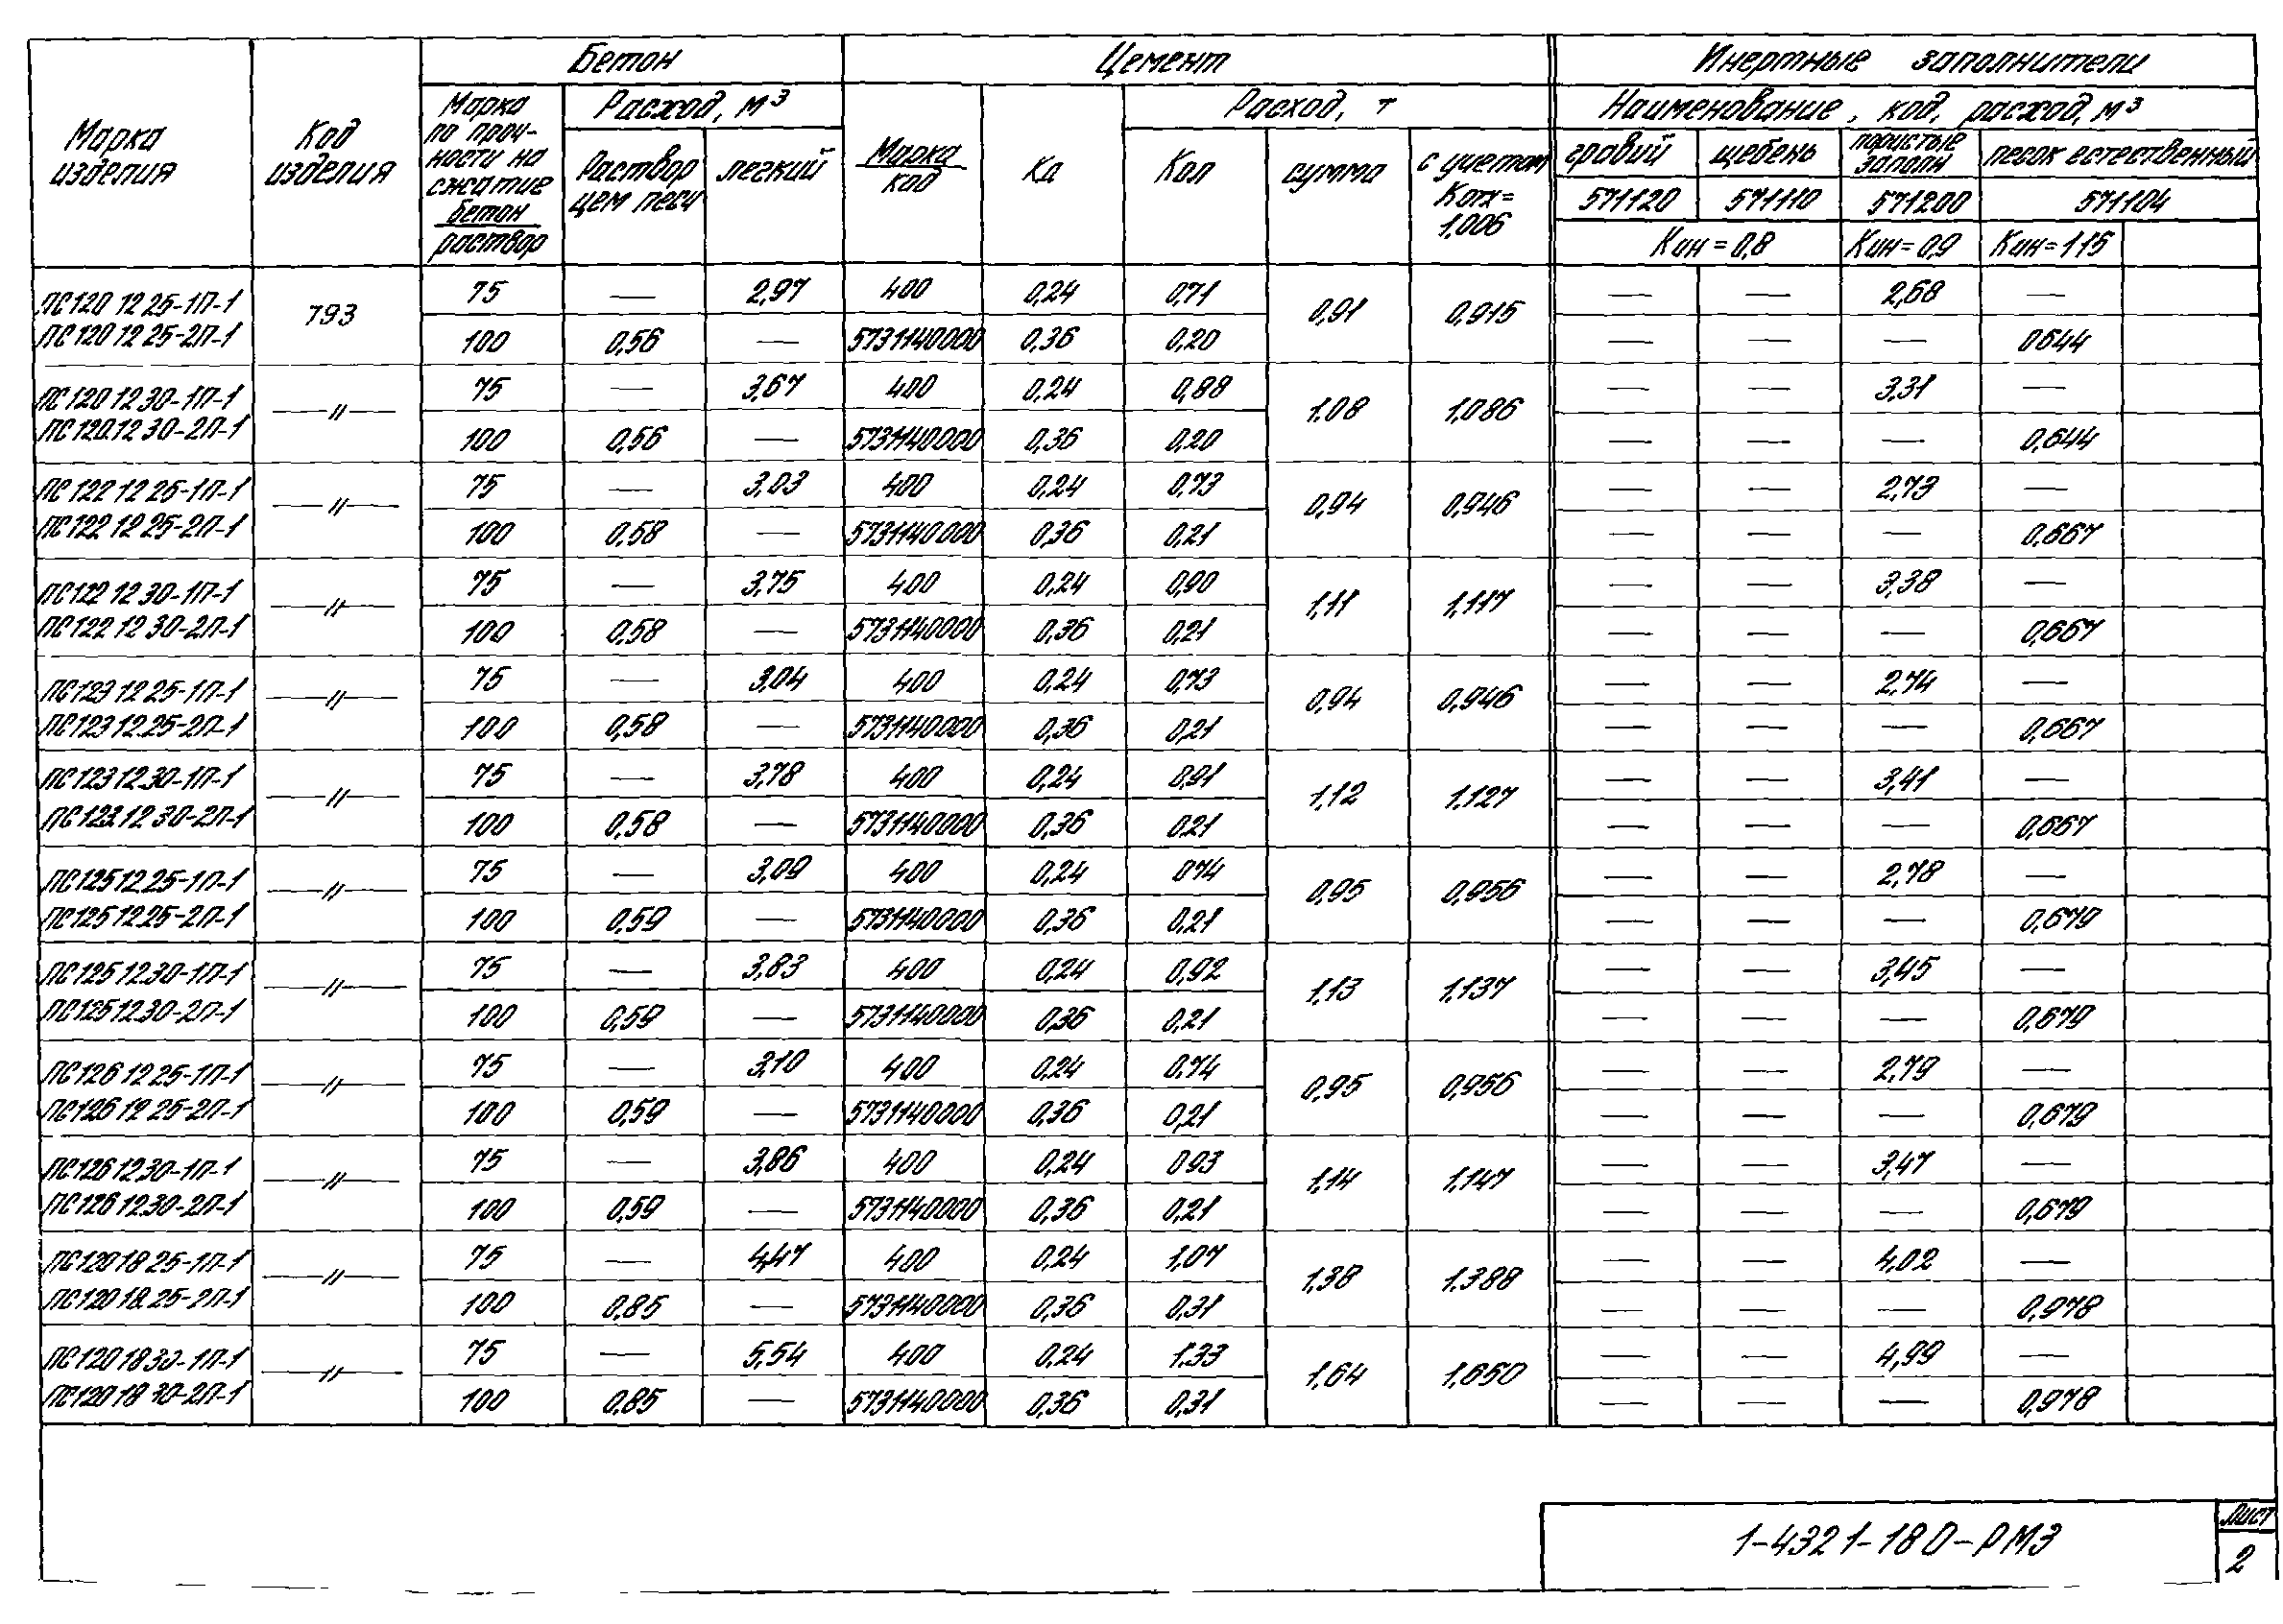 Марка изделия
Код изделия
Бетон
Цемент
Инертные заполнители
Марка по проч-ности на сжатие бетон раствор
Расход, м³
Раствор цем песч
легкий
Марка код
Кд
Расход, т
Кол
сумма
с учетом Котх= 1,006
Наименование, код, расход, м³
гравий щебень пористые заполн песок естественный
571120 571110 571200 571104
Кин = 0,8 Кин = 0,9 Кин = 1.15
ПС120 12 25-1П-1 793 75 — 2,97 400 0,24 0,71 0,91 0,915 — — 2,68 —
ПС120 12 25-2П-1 100 0,56 — 5731140000 0,36 0,20 — — — 0644
ПС120 12 30-1П-1 —〃— 75 — 3,67 400 0,24 0,88 1,08 1,086 — — 3.31 —
ПС120.12 30-2П-1 100 0,56 — 5731140000 0,36 0,20 — — — 0,644
ПС122 12 25-1П-1 —〃— 75 — 3,03 400 0,24 0,73 0,94 0,946 — — 2,73 —
ПС122 12 25-2П-1 100 0,58 — 5731140000 0,36 0,21 — — — 0,667
ПС122 12 30-1П-1 —〃— 75 — 3,75 400 0,24 0,90 1,11 1,117 — — 3,38 —
ПС122 12 30-2П-1 100 0,58 — 5731140000 0,36 0,21 — — — 0,667
ПС123 12 25-1П-1 —〃— 75 — 3,04 400 0,24 0,73 0,94 0,946 — — 2,74 —
ПС123 12.25-2П-1 100 0,58 — 5731140000 0,36 0,21 — — — 0,667
ПС123 12.30-1П-1 —〃— 75 — 3,78 400 0,24 0,91 1,12 1,127 — — 3,41 —
ПС123.12 30-2П-1 100 0,58 — 5731140000 0,36 0,21 — — — 0,667
ПС125 12.25-1П-1 —〃— 75 — 3,09 400 0,24 074 0,95 0,956 — — 2,78 —
ПС125 12.25-2П-1 100 0,59 — 5731140000 0,36 0,21 — — — 0,679
ПС125 12.30-1П-1 —〃— 75 — 3,83 400 0,24 0,92 1,13 1,137 — — 3,45 —
ПС125 12.30-2П-1 100 0,59 — 5731140000 0,36 0,21 — — — 0,679
ПС126 12 25-1П-1 —〃— 75 — 3,10 400 0,24 0,74 0,95 0,956 — — 2,79 —
ПС126 12 25-2П-1 100 0,59 — 5731140000 0,36 0,21 — — — 0,679
ПС126 12.30-1П-1 —〃— 75 — 3,86 400 0,24 093 1,14 1,147 — — 3,47 —
ПС126 12.30-2П-1 100 0,59 — 5731140000 0,36 0,21 — — — 0,679
ПС120 18 25-1П-1 —〃— 75 — 4,47 400 0,24 1,07 1,38 1.388 — — 4,02 —
ПС120 18.25-2П-1 100 0,85 — 5731140000 0,36 0,31 — — — 0,978
ПС120 18 30-1П-1 —〃— 75 — 5,54 400 0,24 1.33 1,64 1.650 — — 4,99 —
ПС120 18 30-2П-1 100 0,85 — 5731140000 0,36 0,31 — — — 0,978
1-432 1-18 0-РМ3
Лист
2